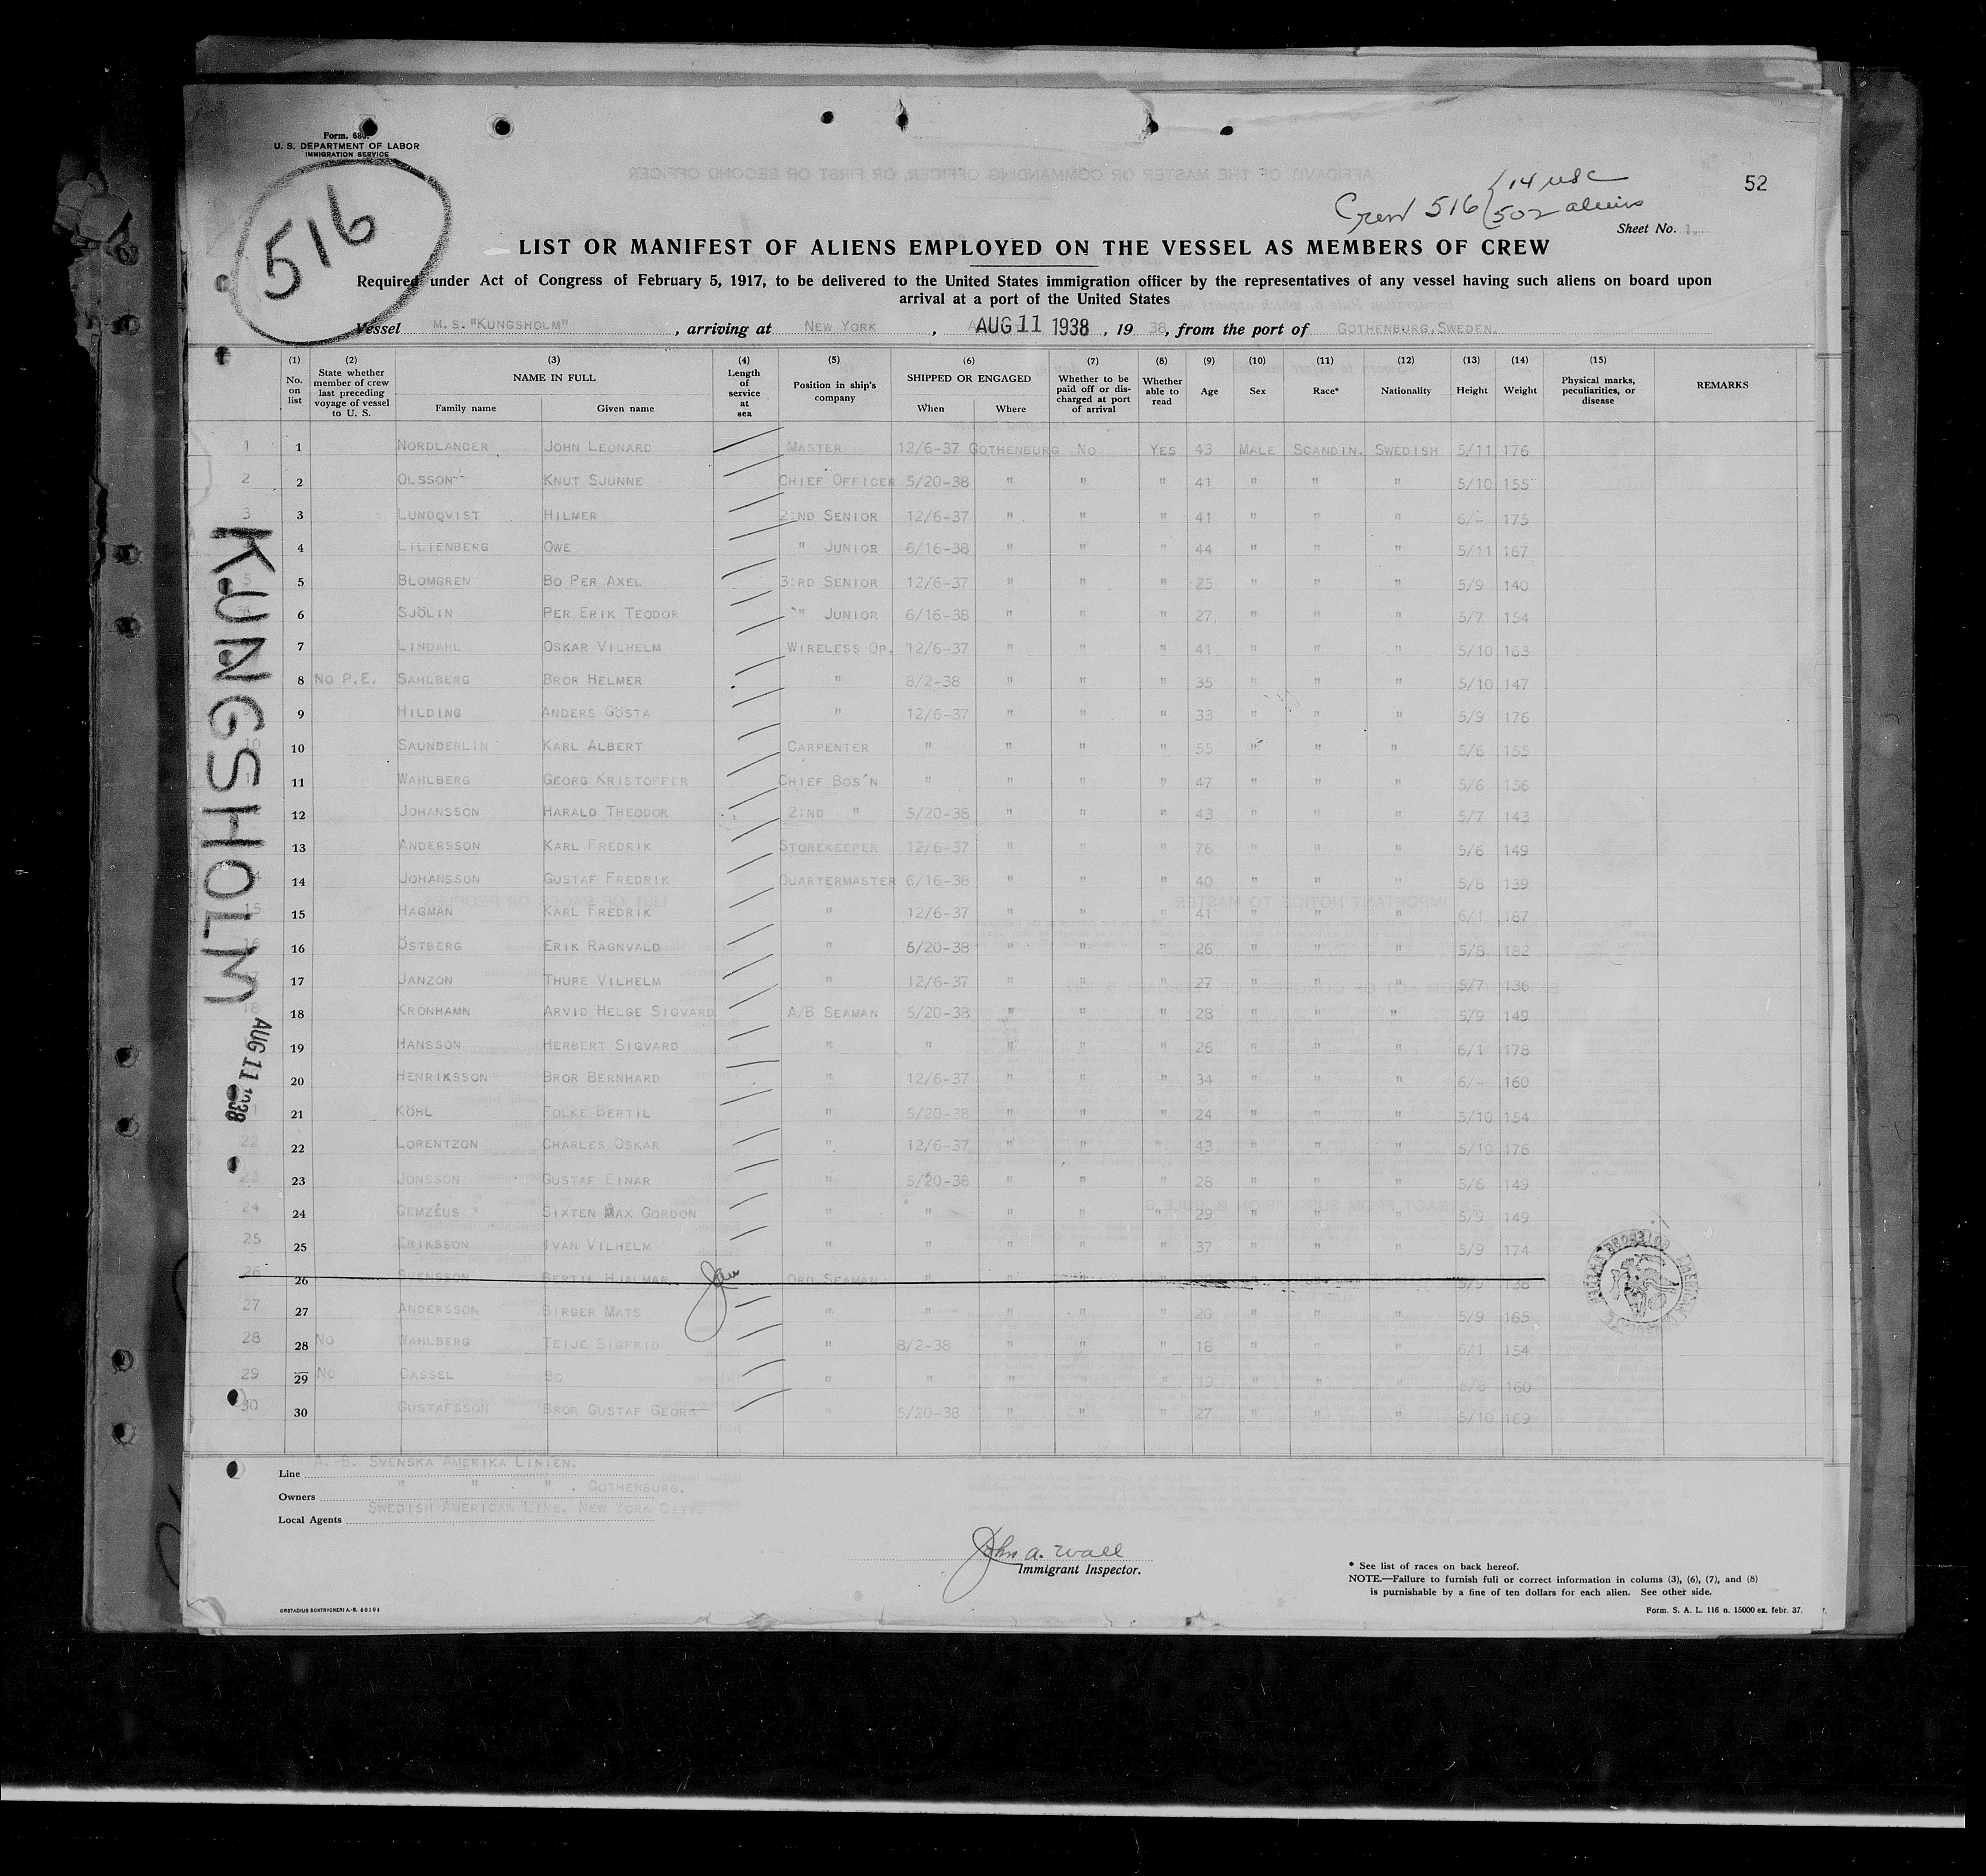 Form. 680.
U. S. DEPARTMENT OF LABOR
IMMIGRATION SERVICE
516
Crew 516 { 14 USC
502 aliens
52
Sheet No. 1.
LIST OR MANIFEST OF ALIENS EMPLOYED ON THE VESSEL AS MEMBERS OF CREW
Required under Act of Congress of February 5, 1917, to be delivered to the United States immigration officer by the representatives of any vessel having such aliens on board upon
arrival at a port of the United States
Vessel M.S."KUNGSHOLM", arriving at NEW YORK, AUG 11 1938, 19 38, from the port of GOTHENBURG, SWEDEN.
(1) No. on list (2) State whether member of crew last preceding voyage of vessel to U. S. (3) NAME IN FULL Family name Given name (4) Length of service at sea (5) Position in ship's company (6) SHIPPED OR ENGAGED When Where (7) Whether to be paid off or discharged at port of arrival (8) Whether able to read (9) Age (10) Sex (11) Race* (12) Nationality (13) Height (14) Weight (15) Physical marks, peculiarities, or disease REMARKS
1 1 NORDLANDER JOHN LEONARD MASTER 12/6-37 GOTHENBURG NO YES 43 MALE SCANDIN. SWEDISH 5/11 176
2 2 OLSSON KNUT SJUNNE CHIEF OFFICER 5/20-38 " " " 41 " " " 5/10 155
3 3 LUNDQVIST HILMER 2:ND SENIOR 12/6-37 " " " 41 " " " 6/- 175
4 LILIENBERG OWE " JUNIOR 6/16-38 " " " 44 " " " 5/11 167
5 5 BLOMGREN BO PER AXEL 3:RD SENIOR 12/6-37 " " " 25 " " " 5/9 140
6 SJÖLIN PER ERIK TEODOR " JUNIOR 6/16-38 " " " 27 " " " 5/7 154
7 LINDAHL OSKAR VILHELM WIRELESS OP. 12/6-37 " " " 41 " " " 5/10 163
8 NO P.E. SAHLBERG BROR HELMER " 8/2-38 " " " 35 " " " 5/10 147
9 HILDING ANDERS GÖSTA " 12/6-37 " " " 33 " " " 5/9 176
10 SAUNDERLIN KARL ALBERT CARPENTER " " " " 55 " " " 5/6 155
11 WAHLBERG GEORG KRISTOFFER CHIEF BOS'N " " " " 47 " " " 5/6 156
12 JOHANSSON HARALD THEODOR 2:ND " 5/20-38 " " " 43 " " " 5/7 143
13 ANDERSSON KARL FREDRIK STOREKEEPER 12/6-37 " " " 76 " " " 5/6 149
14 JOHANSSON GUSTAF FREDRIK QUARTERMASTER 6/16-38 " " " 40 " " " 5/8 139
15 15 HAGMAN KARL FREDRIK " 12/6-37 " " " 41 " " " 6/1 187
16 16 ÖSTBERG ERIK RAGNVALD " 5/20-38 " " " 26 " " " 5/8 182
17 JANZON THURE VILHELM " 12/6-37 " " " 27 " " " 5/7 136
18 18 KRONHAMN ARVID HELGE SIGVARD A/B SEAMAN 5/20-38 " " " 28 " " " 5/9 149
19 HANSSON HERBERT SIGVARD " " " " " 26 " " " 6/1 178
20 HENRIKSSON BROR BERNHARD " 12/6-37 " " " 34 " " " 6/- 160
21 KÖHL FOLKE BERTIL " 5/20-38 " " " 24 " " " 5/10 154
22 22 LORENTZON CHARLES OSKAR " 12/6-37 " " " 43 " " " 5/10 176
23 23 JONSSON GUSTAF EINAR " 5/20-38 " " " 28 " " " 5/6 149
24 24 GEMZÉUS SIXTEN MAX GORDON " " " " " 29 " " " 5/9 149
25 25 ERIKSSON IVAN VILHELM " " " " " 37 " " " 5/9 174
26 26 SVENSSON BERTIL HJALMAR JAW ORD SEAMAN " 5/9 138
27 27 ANDERSSON BIRGER MATS " " " " " 20 " " " 5/9 165
28 28 NO WAHLBERG TEIJE SIGFRID " 8/2-38 " " " 18 " " " 6/1 154
29 29 NO CASSEL BO " " " " " 19 " " " 5/8 160
30 30 GUSTAFSSON BROR GUSTAF GEORG " 5/20-38 " " " 27 " " " 5/10 169
KUNGSHOLM
AUG 11 1938
Line A.-B. SVENSKA AMERIKA LINIEN.
Owners " " " . GOTHENBURG.
Local Agents SWEDISH AMERICAN LINE. NEW YORK CITY.
John A. Wall
Immigrant Inspector.
* See list of races on back hereof.
NOTE.—Failure to furnish full or correct information in colums (3), (6), (7), and (8)
is punishable by a fine of ten dollars for each alien. See other side.
Form. S. A. L. 116 n. 15000 ex. febr. 37.